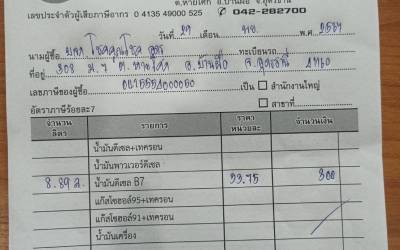 ต.หายโศก อ.บ้านผือ จ.อุดรธานี
เลขประจำตัวผู้เสียภาษีอากร 0 4135 49000 525 042-282700
วันที่ 27 เดือน พ.ศ. 2567
นามผู้ซื้อ ทะเบียนรถ
ที่อยู่ 308 ม.7 ต.หายโศก อ.บ้านผือ จ.อุดรธานี 41160
เลขภาษีของผู้ซื้อ เป็น สำนักงานใหญ่
อัตราภาษีร้อยละ7 สาขาที่
จำนวนลิตร รายการ ราคาหน่วยละ จำนวนเงิน
น้ำมันดีเซล+เทครอน
น้ำมันพาวเวอร์ดีเซล
8.89 ล. น้ำมันดีเซล B7 33.75 300
แก๊สโซฮอล์95+เทครอน
แก๊สโซฮอล์91+เทครอน
น้ำมันเครื่อง